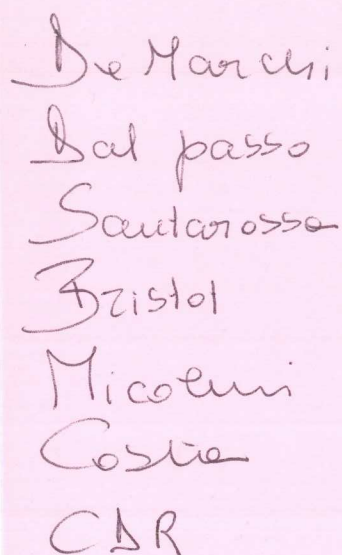 De Marchi
Dal passo
Santarossa
Bristol
Micoluni
Costa
CDR